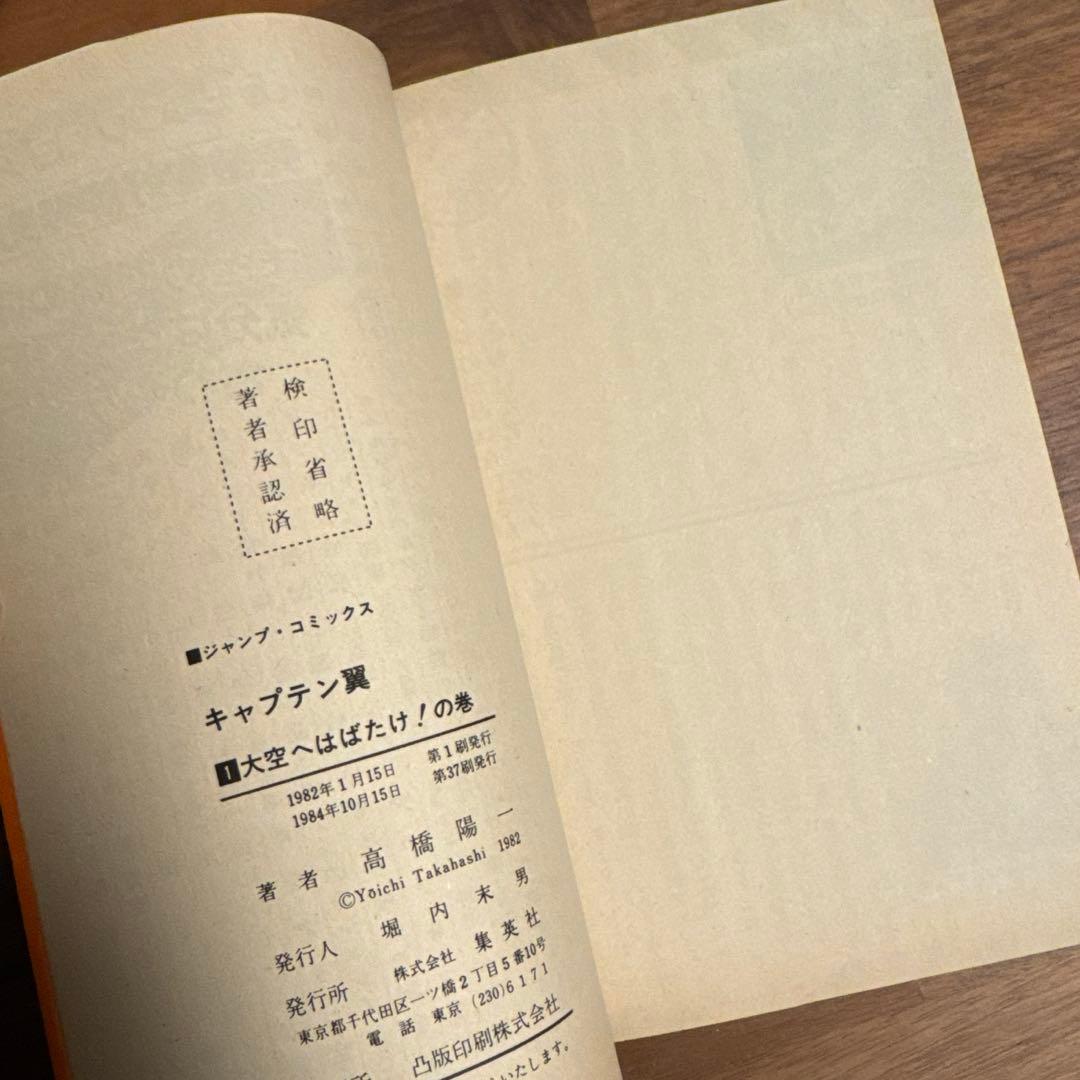 検印省略
著者承認済
■ジャンプ・コミックス
キャプテン翼
1大空へはばたけ!の巻
1982年1月15日 第1刷発行
1984年10月15日 第37刷発行
著者 高橋陽一
©Yōichi Takahashi 1982
発行人 堀内末男
発行所 株式会社 集英社
東京都千代田区一ツ橋2丁目5番10号
電話 東京 (230)6171
所 凸版印刷株式会社
いたします。